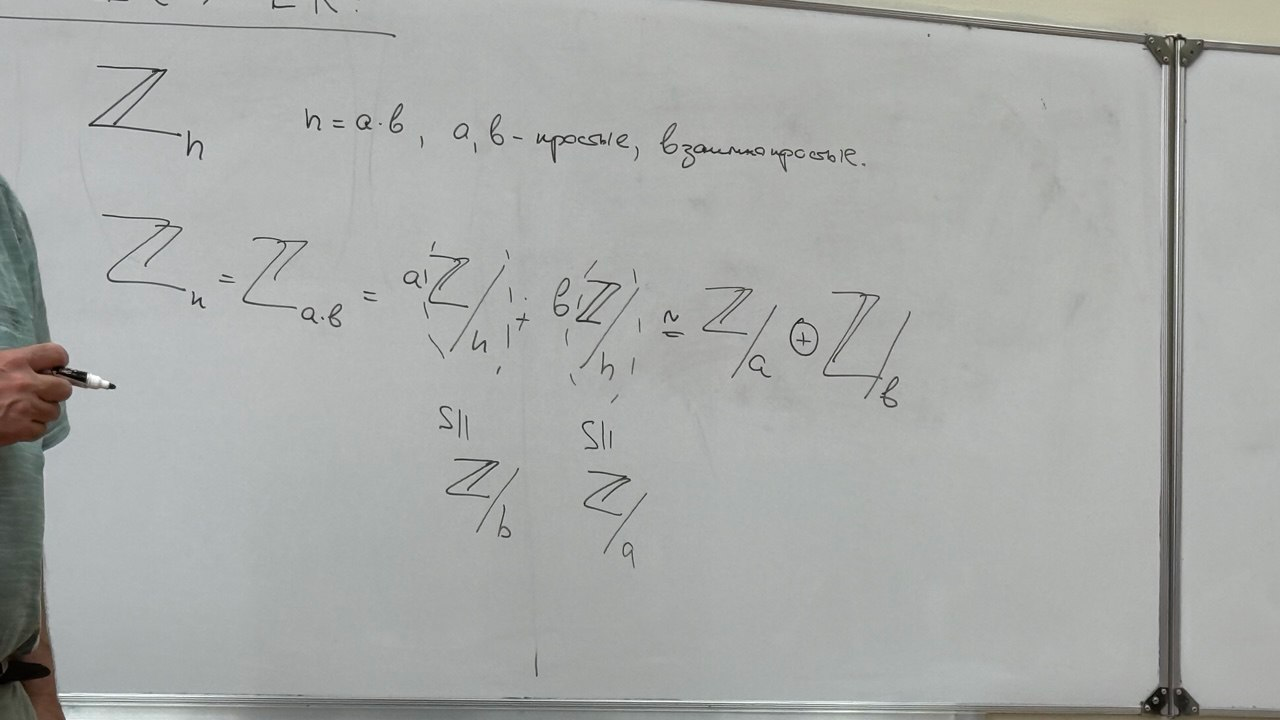 ℤn n = a·b, a, b – простые, взаимнопростые.
ℤn = ℤa·b = aℤ/n + bℤ/n ≃ ℤ/a ⊕ ℤ/b
S|| S||
ℤ/b ℤ/a